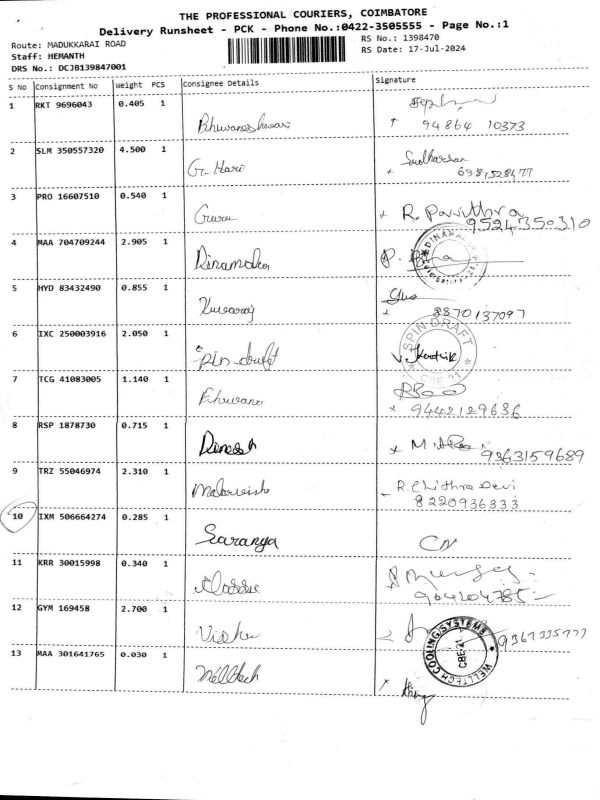 THE PROFESSIONAL COURIERS, COIMBATORE
Delivery Runsheet - PCK - Phone No.:0422-3505555 - Page No.:1
Route: MADUKKARAI ROAD
RS No.: 1398470
Staff: HEMANTH
RS Date: 17-Jul-2024
DRS No.: DCJB139847001
S No Consignment No Weight PCS Consignee Details Signature
1 RKT 9696043 0.405 1 Bhuvaneshwari
94864 10373
2 SLM 350557320 4.500 1 G. Hari Sudharsan
3 PRO 16607510 0.540 1 Guru R. Pavithra
9524350310
4 MAA 704709244 2.905 1 Dinamalar
5 HYD 83432490 0.855 1 Yuvaraj
8870137097
6 IXC 250003916 2.050 1 Spin draft V. Karthik
SPIN DRAFT
CBE-21
7 TCG 41083005 1.140 1 Bhuvana
9442129636
8 RSP 1878730 0.715 1 Dinesh
9363159689
9 TRZ 55046974 2.310 1 R. Chithra Devi
8220936333
10 IXM 506664274 0.285 1 Saranya CN
11 KRR 30015998 0.340 1
12 GYM 169458 2.700 1
WELLTECH COOLING SYSTEMS
CBE-21
13 MAA 301641765 0.030 1 Welltech